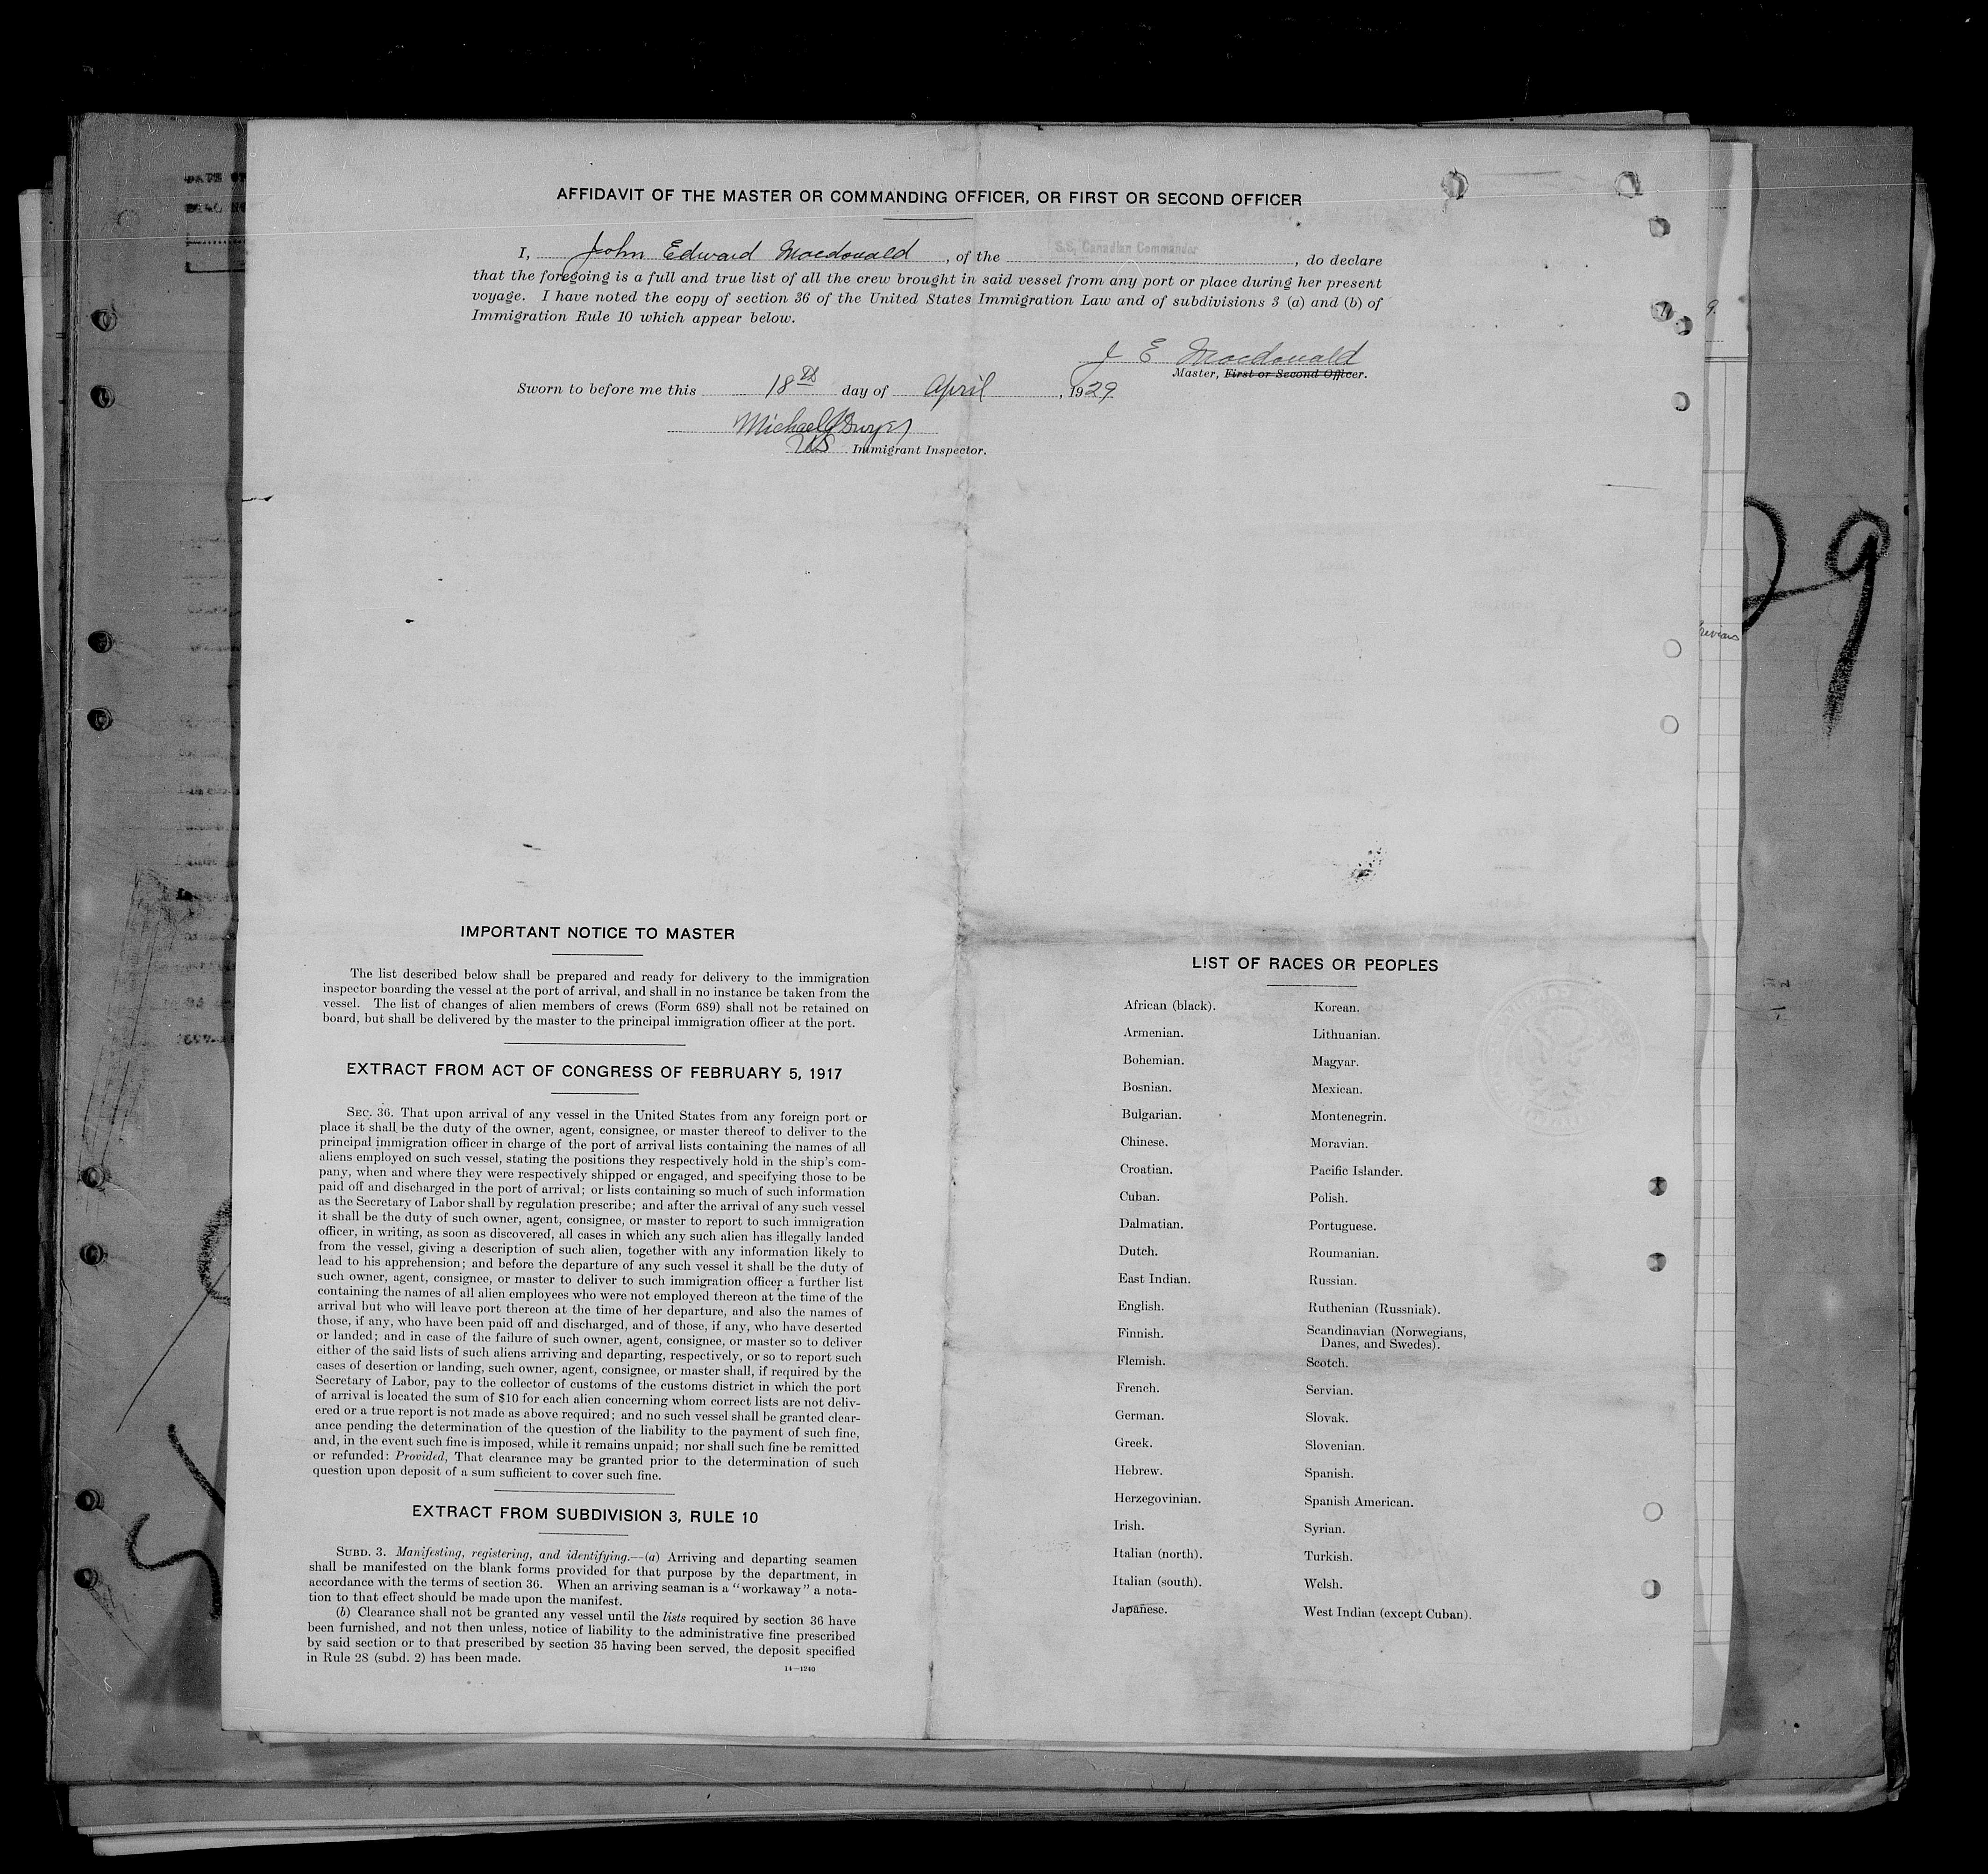 AFFIDAVIT OF THE MASTER OR COMMANDING OFFICER, OR FIRST OR SECOND OFFICER
I, John Edward Macdonald, of the S.S. Canadian Commander, do declare
that the foregoing is a full and true list of all the crew brought in said vessel from any port or place during her present
voyage. I have noted the copy of section 36 of the United States Immigration Law and of subdivisions 3 (a) and (b) of
Immigration Rule 10 which appear below.
J E Macdonald
Master, First or Second Officer.
Sworn to before me this 18th day of April, 1929
Michael Dwyer
US Immigrant Inspector.
IMPORTANT NOTICE TO MASTER
The list described below shall be prepared and ready for delivery to the immigration
inspector boarding the vessel at the port of arrival, and shall in no instance be taken from the
vessel. The list of changes of alien members of crews (Form 689) shall not be retained on
board, but shall be delivered by the master to the principal immigration officer at the port.
EXTRACT FROM ACT OF CONGRESS OF FEBRUARY 5, 1917
SEC. 36. That upon arrival of any vessel in the United States from any foreign port or
place it shall be the duty of the owner, agent, consignee, or master thereof to deliver to the
principal immigration officer in charge of the port of arrival lists containing the names of all
aliens employed on such vessel, stating the positions they respectively hold in the ship's com-
pany, when and where they were respectively shipped or engaged, and specifying those to be
paid off and discharged in the port of arrival; or lists containing so much of such information
as the Secretary of Labor shall by regulation prescribe; and after the arrival of any such vessel
it shall be the duty of such owner, agent, consignee, or master to report to such immigration
officer, in writing, as soon as discovered, all cases in which any such alien has illegally landed
from the vessel, giving a description of such alien, together with any information likely to
lead to his apprehension; and before the departure of any such vessel it shall be the duty of
such owner, agent, consignee, or master to deliver to such immigration officer a further list
containing the names of all alien employees who were not employed thereon at the time of the
arrival but who will leave port thereon at the time of her departure, and also the names of
those, if any, who have been paid off and discharged, and of those, if any, who have deserted
or landed; and in case of the failure of such owner, agent, consignee, or master so to deliver
either of the said lists of such aliens arriving and departing, respectively, or so to report such
cases of desertion or landing, such owner, agent, consignee, or master shall, if required by the
Secretary of Labor, pay to the collector of customs of the customs district in which the port
of arrival is located the sum of $10 for each alien concerning whom correct lists are not deliv-
ered or a true report is not made as above required; and no such vessel shall be granted clear-
ance pending the determination of the question of the liability to the payment of such fine,
and, in the event such fine is imposed, while it remains unpaid; nor shall such fine be remitted
or refunded: Provided, That clearance may be granted prior to the determination of such
question upon deposit of a sum sufficient to cover such fine.
EXTRACT FROM SUBDIVISION 3, RULE 10
SUBD. 3. Manifesting, registering, and identifying.—(a) Arriving and departing seamen
shall be manifested on the blank forms provided for that purpose by the department, in
accordance with the terms of section 36. When an arriving seaman is a "workaway" a nota-
tion to that effect should be made upon the manifest.
(b) Clearance shall not be granted any vessel until the lists required by section 36 have
been furnished, and not then unless, notice of liability to the administrative fine prescribed
by said section or to that prescribed by section 35 having been served, the deposit specified
in Rule 28 (subd. 2) has been made.
14—1240
LIST OF RACES OR PEOPLES
African (black).
Armenian.
Bohemian.
Bosnian.
Bulgarian.
Chinese.
Croatian.
Cuban.
Dalmatian.
Dutch.
East Indian.
English.
Finnish.
Flemish.
French.
German.
Greek.
Hebrew.
Herzegovinian.
Irish.
Italian (north).
Italian (south).
Japanese.
Korean.
Lithuanian.
Magyar.
Mexican.
Montenegrin.
Moravian.
Pacific Islander.
Polish.
Portuguese.
Roumanian.
Russian.
Ruthenian (Russniak).
Scandinavian (Norwegians,
Danes, and Swedes).
Scotch.
Servian.
Slovak.
Slovenian.
Spanish.
Spanish American.
Syrian.
Turkish.
Welsh.
West Indian (except Cuban).
29